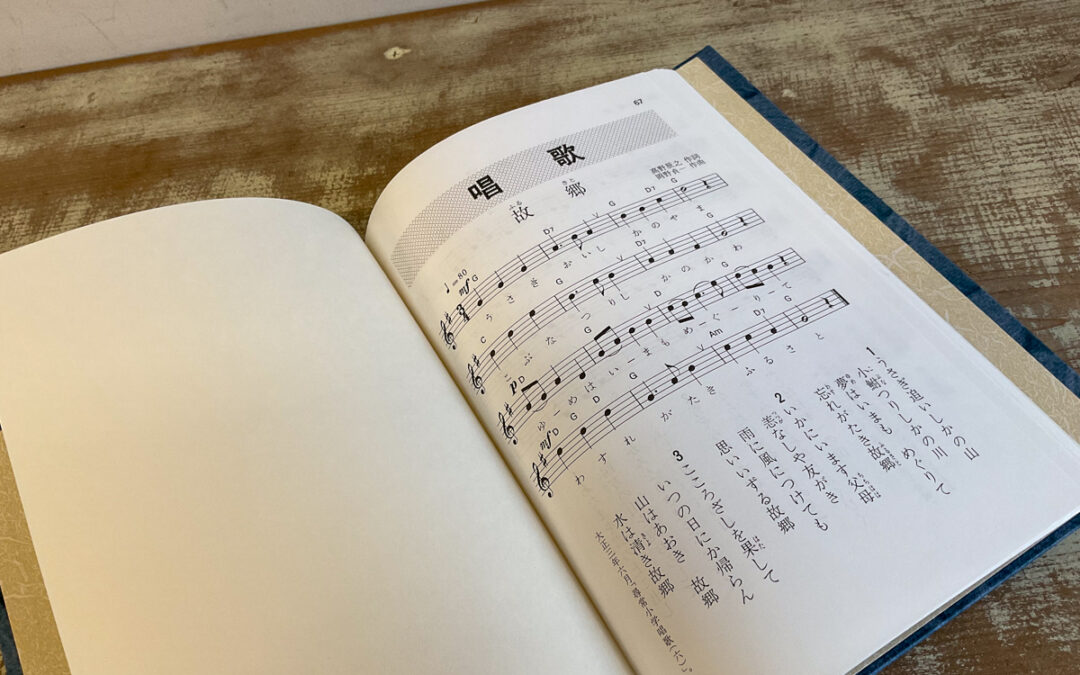 67
唱歌
ふるさと
故郷
高野辰之 作詞
岡野貞一 作曲
♩=80
mf G D7 V G D7 G
うさぎおいしかのやま
C G V D7 G
こぶなつりしかのかわ
p D G V D G
ゆーめはいーまもめーぐーりーて
mf D G D G V Am D7 G
わすれがたきふるさと
1 うさぎ追いしかの山
小鮒つりしかの川
夢はいまもめぐりて
忘れがたき故郷
2 いかにいます父母
恙なしや友がき
雨に風につけても
思いいずる故郷
3 こころざしを果して
いつの日にか帰らん
山はあおき 故郷
水は清き故郷
大正三年六月「尋常小学唱歌(六)」。